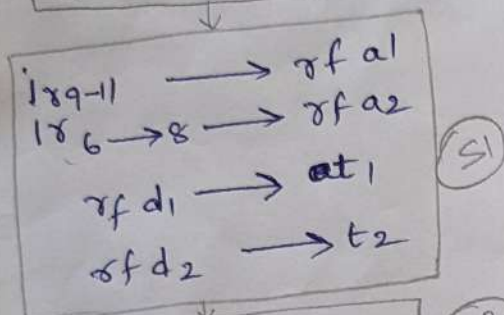 Ir9-11 → rf a1
Ir 6→8 → rf a2
rf d1 → t1
rf d2 → t2
S1